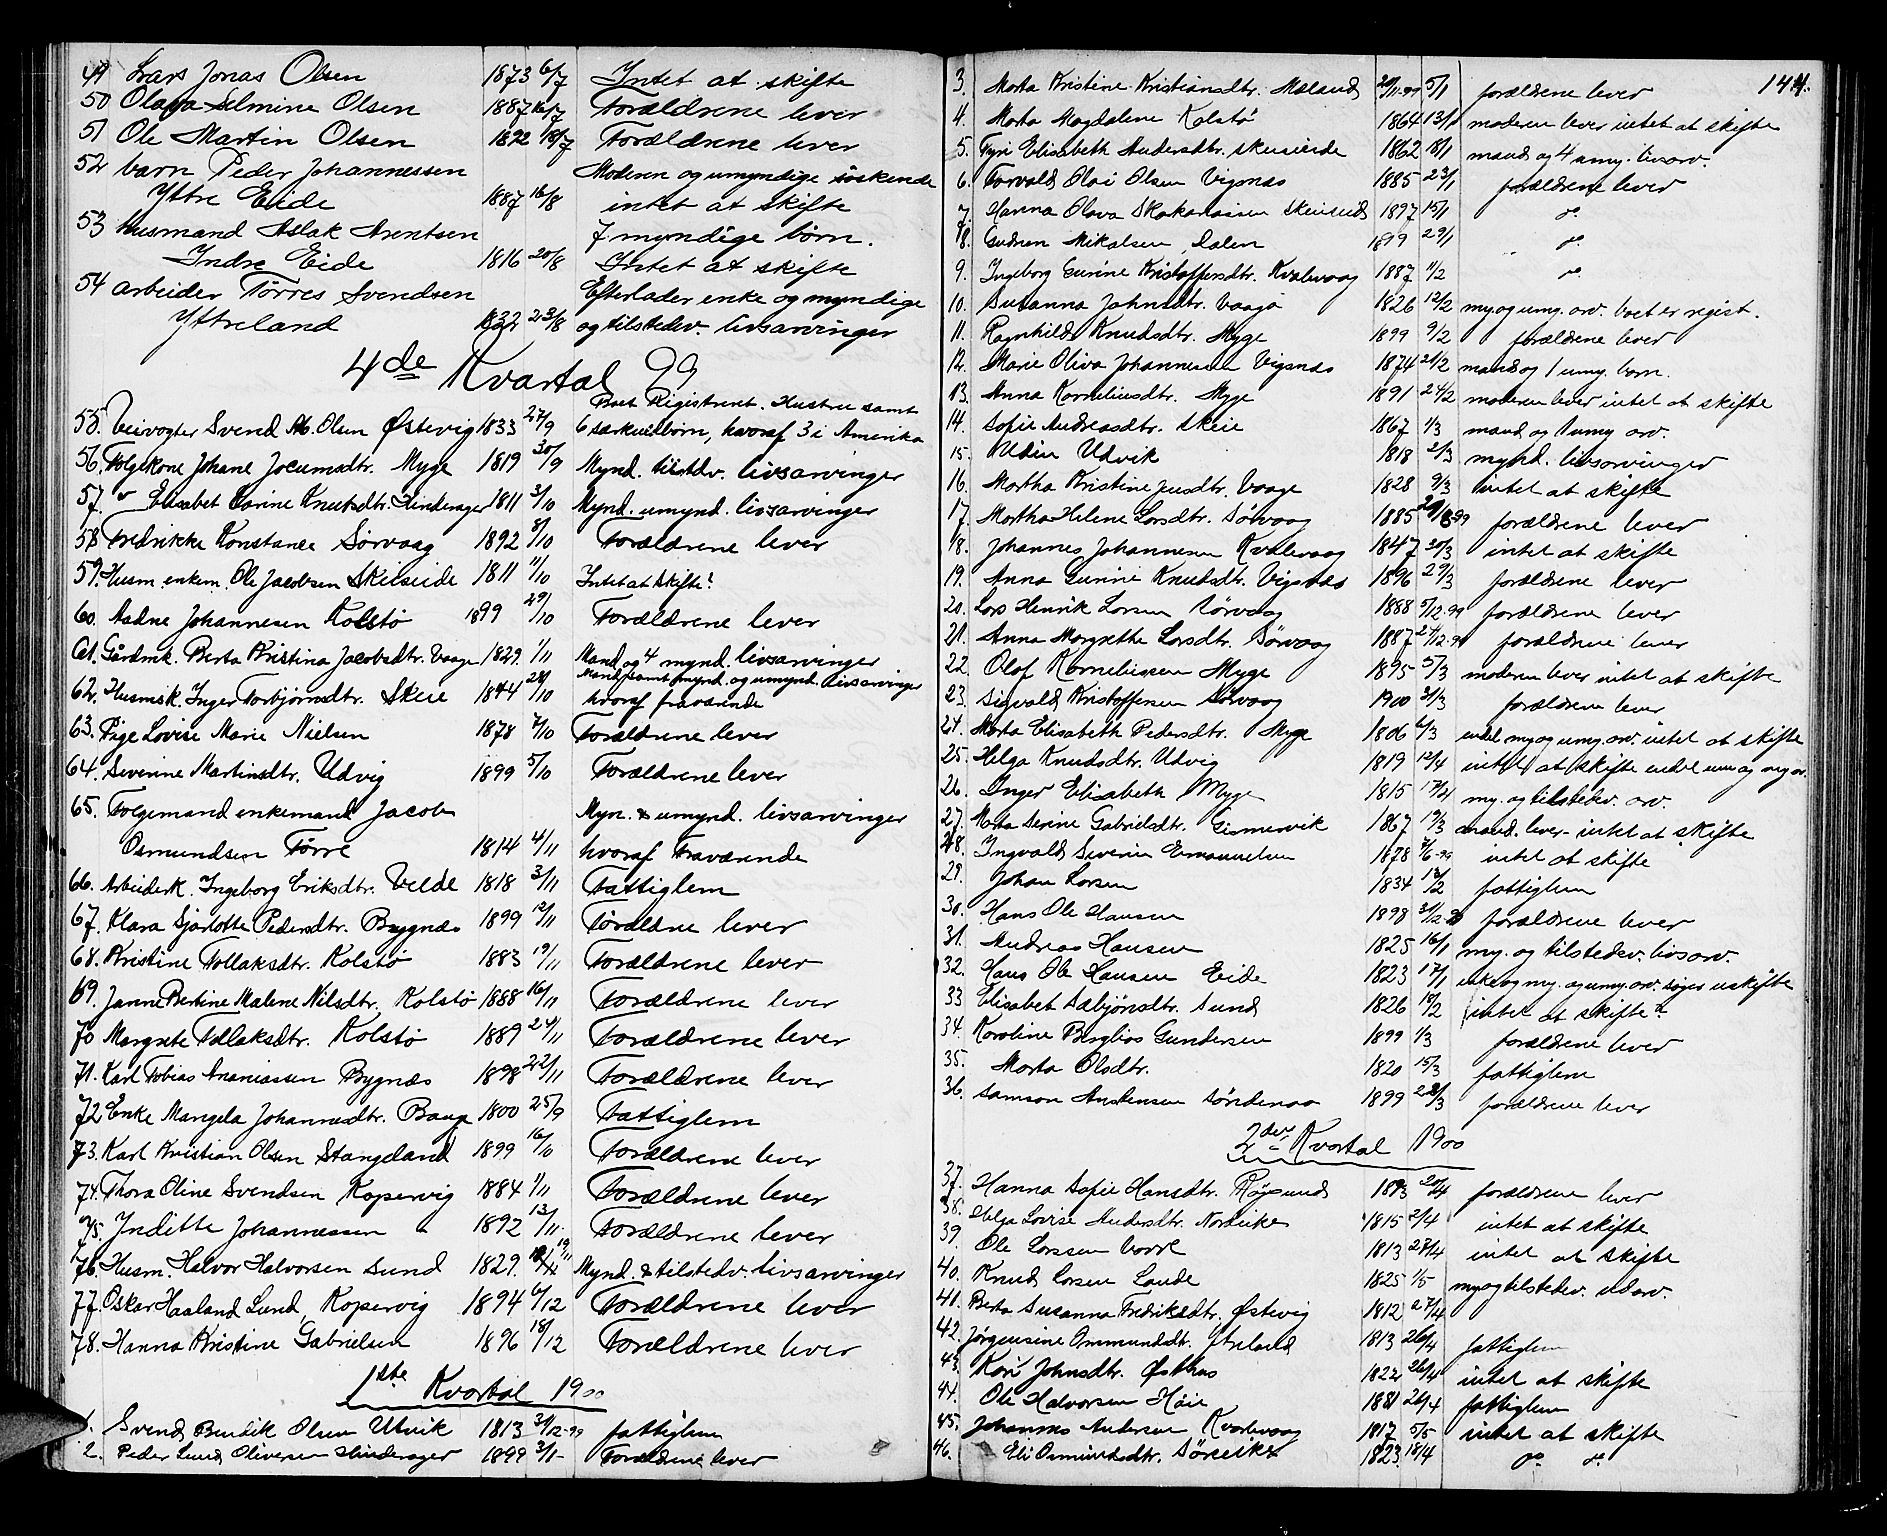 49 Lars Jonas Olsen 1873 6/7 Intet at skifte
50 Olava Selmine Olsen 1887 16/7 Forældrene lever
51 Ole Martin Olsen 1822 18/7 Forældrene lever
52 barn Peder Johannessen Moderen og umyndige søskende
Yttre Eide 1887 16/8 intet at skifte
53 Husmand Aslak Arentsen 7 myndige børn.
Indre Eide 1816 20/8 Intet at skifte
54 arbeider Tørres Svendsen Efterlader enke og myndige
Yttreland 1832 23/8 og tilstedev. livsarvinger
4de Kvartal 99
Boet Registreret. Hustru samt
55. Veivogter Svend Ab. Olsen Østevig 1833 27/9 6 særkuldbørn, hvoraf 3 i Amerika
56. Folgekone Johane Jocumsdtr. Myge 1819 30/9 Mynd. tilstdv. livsarvinger
57. Elisabet Karine Knutsdtr. Hinderager 1811 3/10 Mynd. umynd. livsarvinger
58 Fredrikke Konstance Sørvaag 1892 8/10 Forældrene lever
59. Husm. enkem. Ole Jacobsen Skeiseide 1811 11/10 Intet at Skifte?
60. Aadne Johannesen Kolstø 1899 29/10 Forældrene lever
61. Gårdmk. Berta Kristina Jacobsdtr. Vaage 1829. 1/11 Mand og 4 mynd. livsarvinger
62. Husmsk. Inger Torbjörnsdtr. Skeie 1844 28/10 Mand samt mynd. og umynd. livsarvinger
hvoraf fraværende
63. Pige Lovise Marie Nielsen 1878 7/10 Forældrene lever
64. Severine Martinsdtr. Udvig 1899 5/10 Forældrene lever
65. Folgemand enkemand Jacob Myn. & umynd. livsarvinger
Osmundsen Førre 1814 4/11 hvoraf Fraværende
66. Arbeiderk. Ingeborg Eriksdtr. Velde 1818 3/11 Fattiglem
67. Klara Sjarlotte Pedersdtr. Bygnæs 1899 12/11 Føræeldne lever
68. Kristine Tollaksdtr. Kolstø 1883 19/11 Forældrene lever
69. Janna Bertine Malene Nilsdtr. Kolstø 1888 16/11 Forældrene lever
70 Margrete Tollaksdtr. Kolstø 1889 24/11 Forældrene lever
71. Karl Tobias Ananiassen Bygnæs 1898 22/11 Forældrene lever
72. Enke Mangela Johannesdtr. Bauge 1800 25/9 Fattiglem
73. Karl Kristian Olsen Stangeland 1899 16/10 Forældrene lever
74. Thora Oline Svendsen Kopervig 1884 1/11 Forældrene lever
75. Inditte Johannessen " 1892 13/11. Forældrene lever
76. Husm. Halvor Halvorsen Sund 1829. 19/11 Mynd. & tilstedv. livsarvinger
77. Oskar Haaland Lund, Kopervig 1894 6/12 Forældrene lever
78. Hanna Kristine Gabrielsen 1896 18/12 Forældrene lever
1ste Kvartal 1900
1. Svend Bendik Olsen Utvik 1813 31/12-99 fattiglem
2. Peder Lund Oliversen Hinderager 1899 3/1- Forældrene lever
144.
3. Marta Kristine Kristiansdtr. Maland 20/11-99 5/1 forældrene lever
4. Marta Magdalene Kolstø 1864 13/1 moderen lever intet at skifte
5. Tyri Elisabeth Andersdtr. Skeiseide 1862 18/1 mand og 4 umy. livsarv.
6. Torvald Olai Olsen Vigsnæs 1885 23/1 forældrene lever
7. Hanna Olava Skakariassen Skeiseid 1897 15/1 do
8. Gudrun Mikalsen Dalen 1899 29/1 do
9. Ingeborg Gurine Kristoffersdtr. Kvalevaag 1887 11/2 do
10. Susanna Johnsdtr. Vaaga 1826 12/2 my og umy. arv. boet er regist.
11. Ragnhild Knudsdtr. Myge 1899 9/2 forældrene lever
12. Marie Oliva Johannesen Vigsnæs 1874 21/2 mand og 1 umy. barn.
13. Anna Korneliusdtr. Myge 1891 24/2 moderen lever intet at skifte
14. Sofie Andreasdtr. Skeie 1867 1/3 mand og 1 umy arv.
15. Udvik 1818 2/3 mynd. livsarvinger
16. Martha Kristine Jensdtr. Vaage 1828 9/3 intet at skifte
17. Martha Helene Larsdtr. Sørvaag 1885 forældrene lever
18. Johannes Johannesen Kvalevaag 1847 30/3 intet at skifte
19. Anna Gurine Knudsdtr. Vigsnæs 1896 29/3 forældrene lever
20. Lars Henrik Larsen Sørvaag 1888 5/12-99 forældrene lever
21. Anna Margrethe Larsdtr. Sørvaag 1887 24/12-99 forældrene lever
22 Olaf Korneliussen Myge 1895 5/3 moderen lever intet at skifte
23. Sigvald Kristoffersen Sørvaag 1900 31/3 forældrene lever
24. Marta Elisabeth Pedersdtr. Myge 1806 6/3 my og umy. arv. intet at skifte
25. Helga Knudsdtr. Udvig 1819 12/4 intet at skifte
26. Inger Elisabeth Myge 1815 17/4 my. og tilstedev. arv.
27. Marta Serine Gabrielsdtr. Gismervik 1867 19/3 mand. lever - intet at skifte
28. Ingvald Severin Emanuelsen 1878 7/6-99 intet at skifte
29. Johan Larsen 1834 13/2 fattiglem
30. Hans Ole Hansen 1898 forældrene lever
31. Andreas Hansen 1825 16/1 my. og tilstedev. livsarv.
32. Hans Ole Hansen Eide 1823 17/1 enke og my. og umy. arv. søger uskifte
33 Elisabet Sæbjönsdtr. Sund 1826 18/2 intet at skifte?
34. Karoline Berglias Gundersen 1899 1/3 forældrene lever
35. Marta Olsdtr. 1820 15/3 fattiglem
36. Samson Andersen Söndenaa 1899 22/3 forældrene lever
2det Kvartal 1900
37. Hanna Sofie Hansdtr. Røgsund 1893 20/4 forældrene lever
38. Helga Lovise Andersdtr. Nordvike 1815 2/4 intet at skifte
39. Ole Larssen Vorre 1813 27/4 intet at skifte
40. Knud Larsen Lande 1825 1/5 my og tilstedev. udarv.
41. Berta Susanna Fredriksdtr. Østevig 1812 27/4
42. Jørgensine Ommundsdtr. Ytreland 1813 26/4 fattiglem
43. Kari Johnsdtr. Østhus 1822 26/4 intet at skifte
44. Ole Halvorsen Høie 1881 26/4 fattiglem
45. Johannes Andersen Kvalevaag 1817 5/5 intet at skifte
46. Eli Osmundsdtr. 1823. 18/4 do do